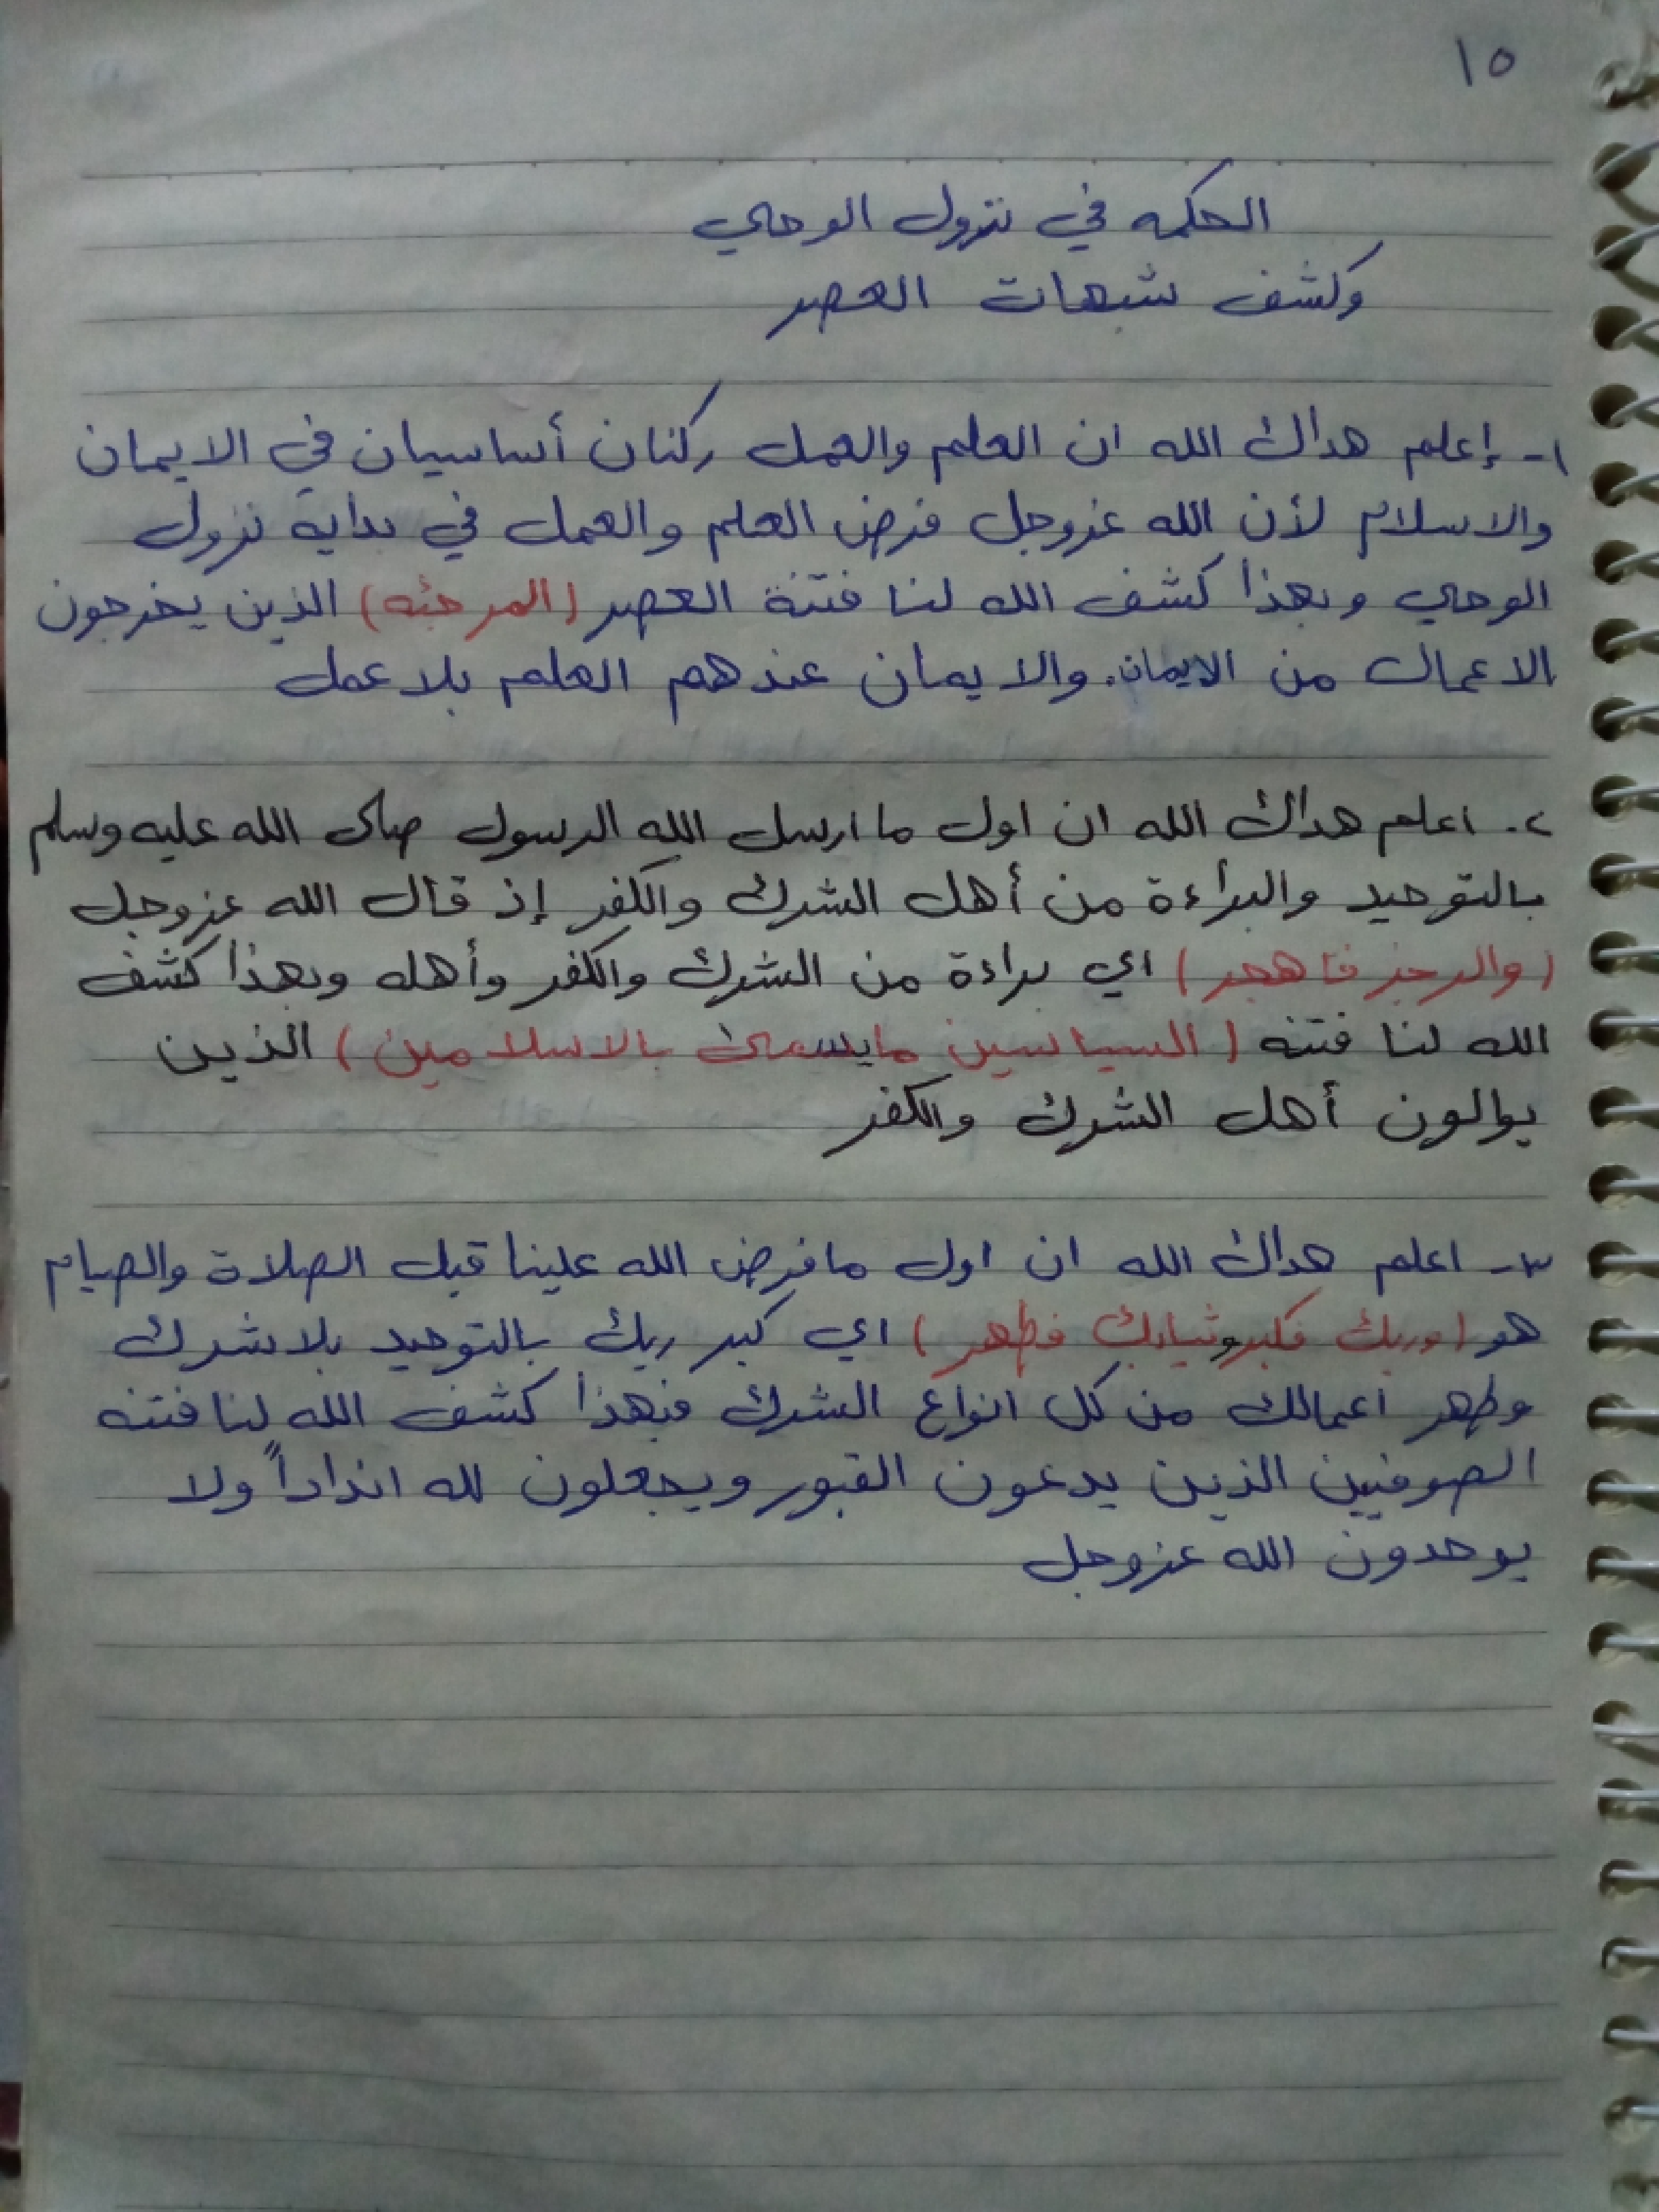 ١٥
الحكمه في نزول الوحي
وكشف شبهات العصر
١- إعلم هداك الله ان العلم والعمل ركنان أساسيان في الايمان
والاسلام لأن الله عزوجل فرض العلم والعمل في بداية نزول
الوحي وبهذا كشف الله لنا فتنة العصر (المرجئه) الذين يخرجون
الاعمال من الايمان. والايمان عندهم العلم بلا عمل
٢. اعلم هداك الله ان اول ما ارسل الله الرسول صلى الله عليه وسلم
بالتوحيد والبرأءة من أهل الشرك والكفر إذ قال الله عزوجل
(والرجز فاهجر) اي براءة من الشرك والكفر وأهله وبهذا كشف
الله لنا فتنه (السياسين مايسمى بالاسلامين) الذين
يوالون أهل الشرك والكفر
٣- اعلم هداك الله ان اول مافرض الله علينا قبل الصلاة والصيام
هو (وربك فكبر وثيابك فطهر) اي كبر ربك بالتوحيد بلا شرك
وطهر اعمالك من كل انواع الشرك فبهذا كشف الله لنا فتنه
الصوفيين الذين يدعون القبور ويجعلون لله انداداً ولا
يوحدون الله عزوجل